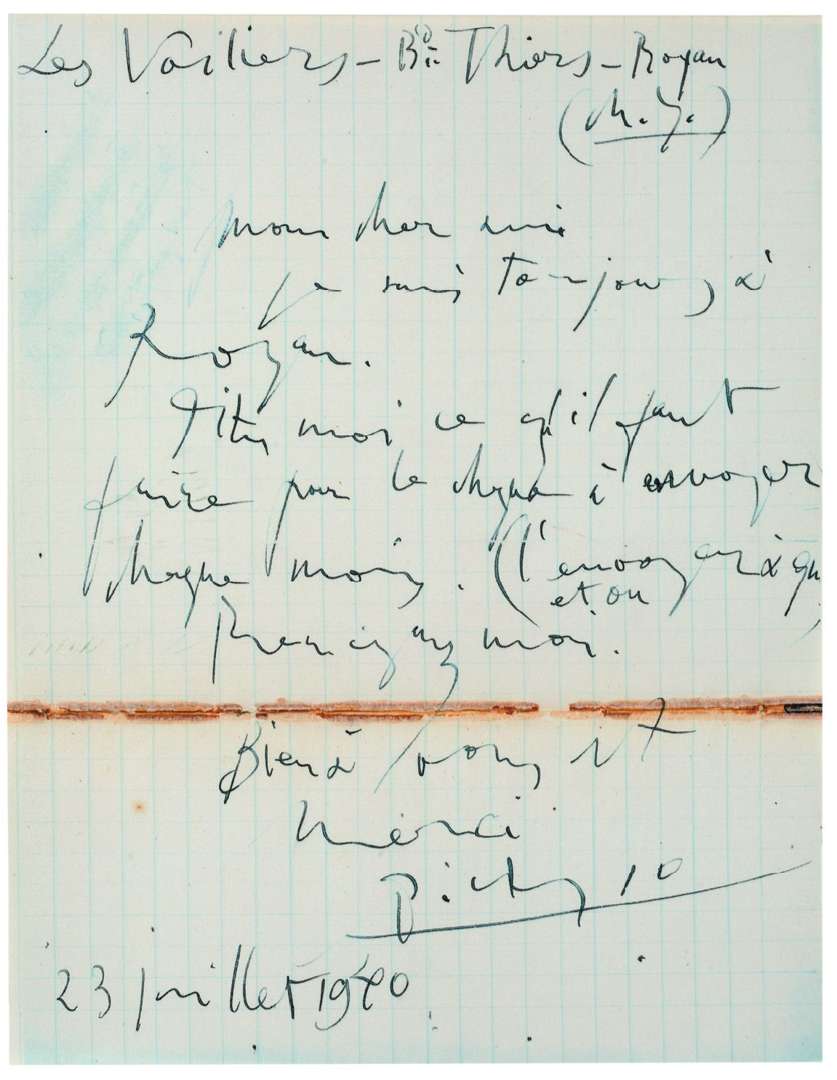 Les Voiliers – Bd. Thiers – Royan
(
mon cher ami
je suis toujours à
Royan.
Dites moi ce qu'il faut
faire pour le cheque à envoyer
chaque mois. (l'envoyer à qui
et ou
Renseignez moi.
Bien à vous et
merci
Picasso
23 juillet 1940